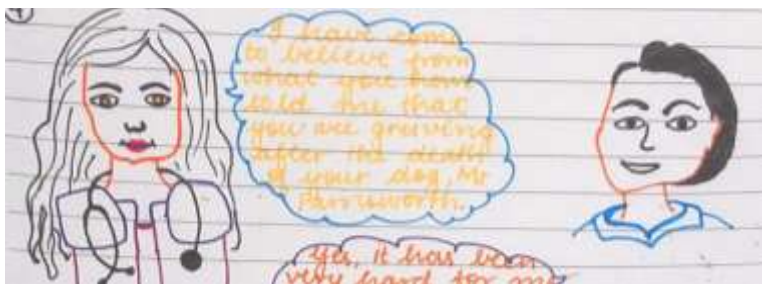 I have come
to believe from
what you have
told me that
you are grieving
after the death
of your dog, Mr
Parnsworth.
Yes, it has been
very hard for me